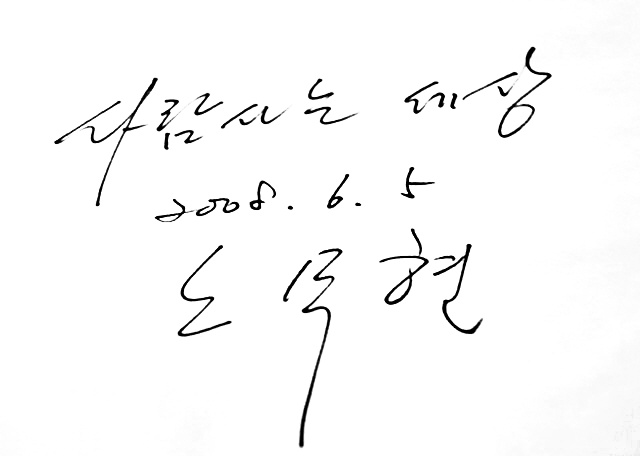 사람사는 세상
2008. 6. 5
노무현